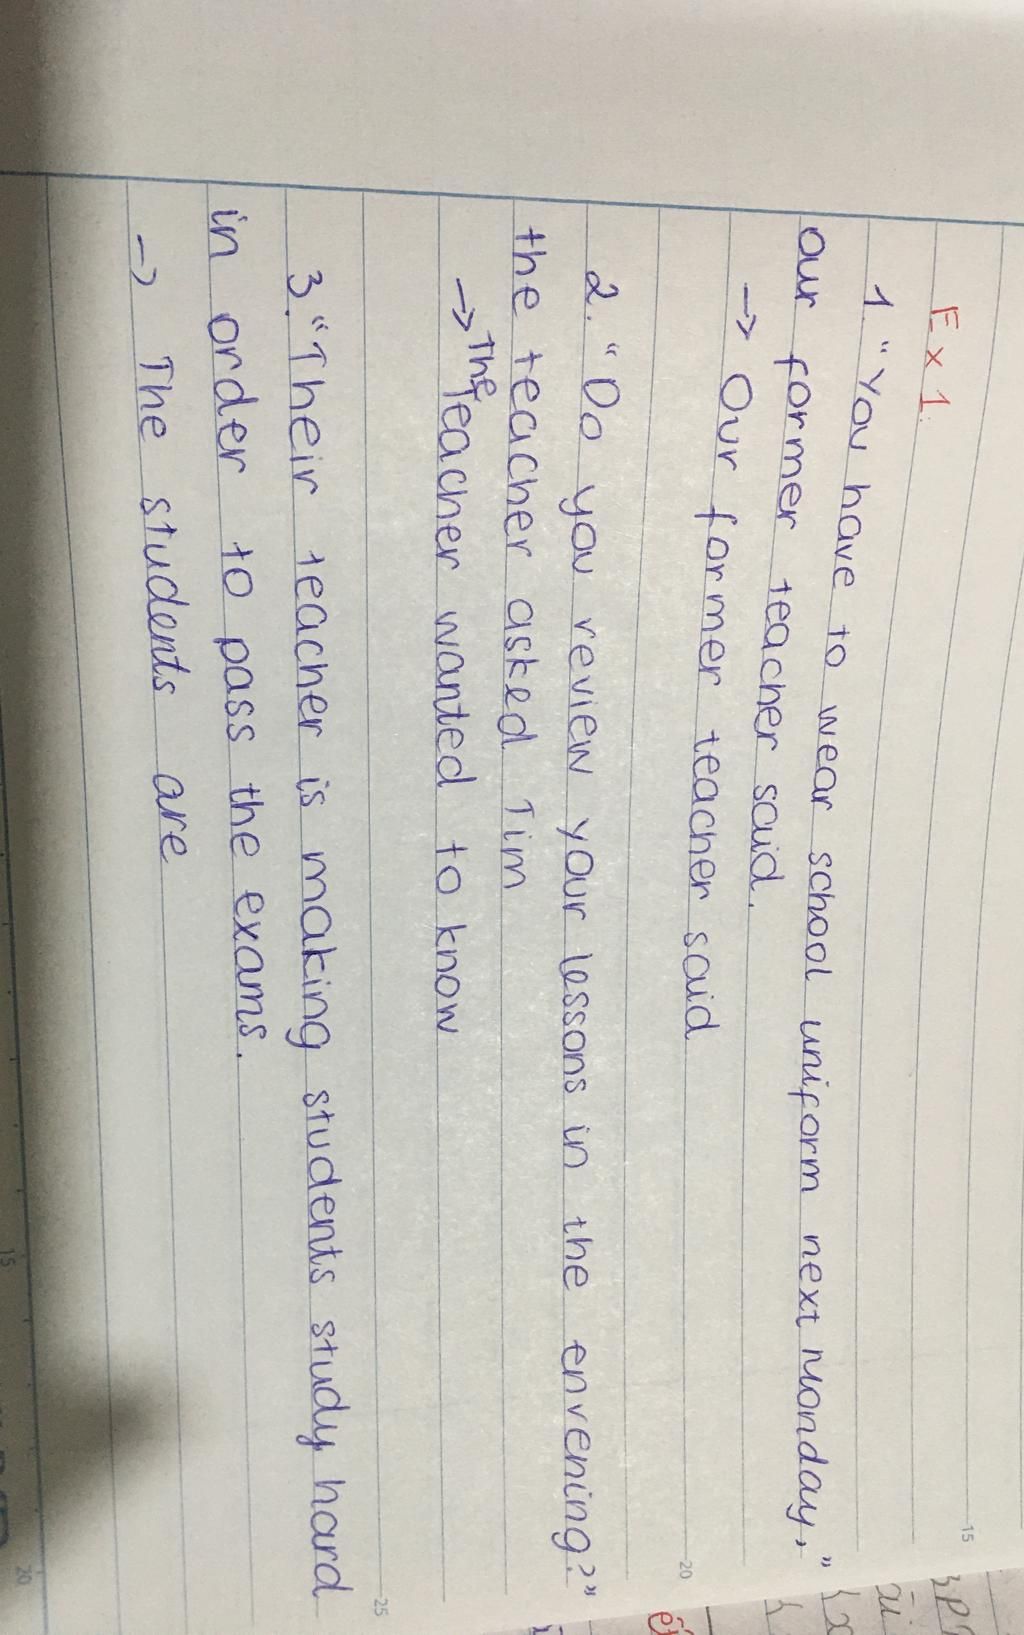 Ex 1.
1. "You have to wear school uniform next Monday,"
our former teacher said.
→ Our former teacher said
2. "Do you review your lessons in the envening?"
the teacher asked Tim
→ The Teacher wanted to know
3. "Their teacher is making students study hard
in order to pass the exams.
→ The students are
15
20
25
15
20